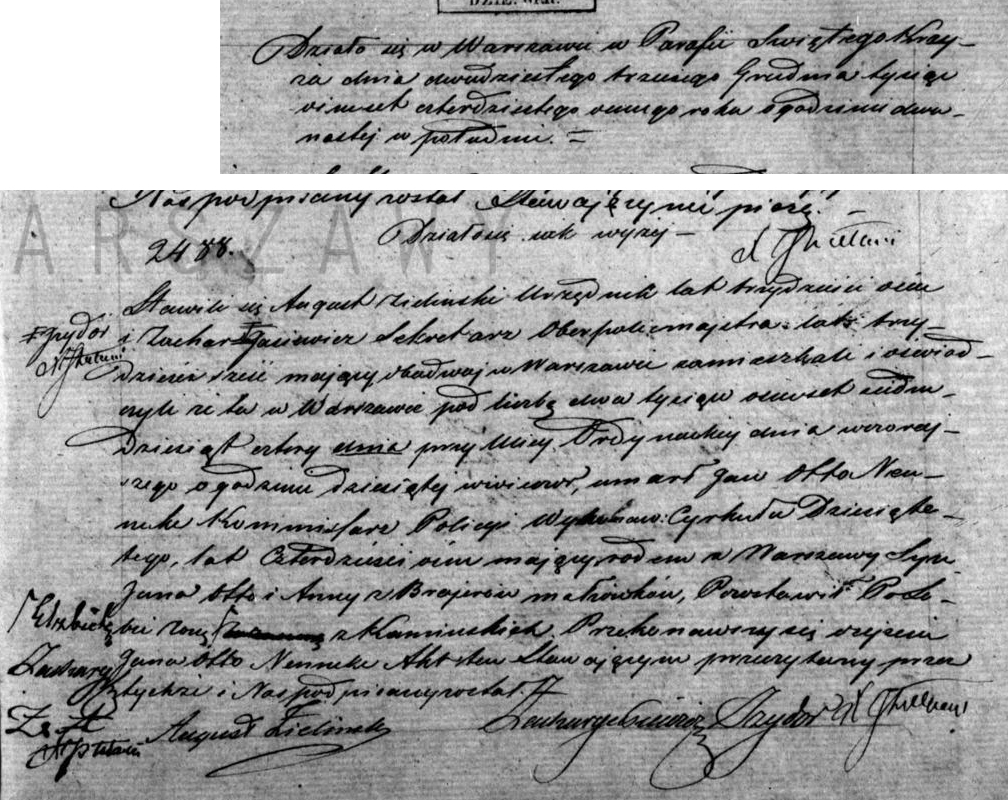 DZIE. WAR.
Działo się w Warszawie w Parafii Świętego Krzy-
ża dnia dwudziestego trzeciego Grudnia tysiąc
ośmset czterdziestego ósmego roku o godzinie dwu-
nastej w południe. =
Nas podpisany został Stawający nie piszą. –
ARSZAWY
2488.
Działo się jak wyżej –
Stawili się August Zieliński Urzędnik lat trzydzieści ośm
i Zachar Sekretarz Oberpolicmajstra lat trzy-
Szydor
dzieści sześć mający obadwaj w Warszawie zamieszkali i oświad-
czyli że tu w Warszawie pod liczbą dwa tysiące ośmset siedm-
dziesiąt cztery dnia przy Ulicy Ordynackiej dnia wczoraj-
szego o godzinie dziesiątej wieczór, umarł Jan Otto Nen-
neke Kommissarz Policyi Cyrkułu Dziesią-
tego, lat czterdzieści ośm mający rodem z Warszawy Syn
Jana Otto i Anny z Brajerów małżonków, Pozostawił Po so-
Elżbietę
bie żonę z Kamińskich. Przekonawszy się o zejściu
Zachary
Jana Otto Nenneke Akt ten Stawającym przeczytany przez
tychże i Nas podpisany został.
August Zieliński
Szydor